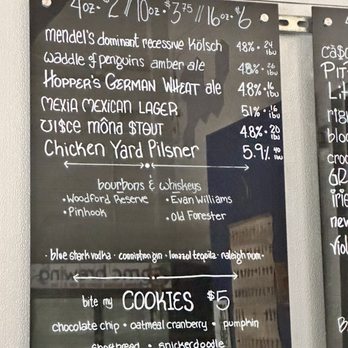 4oz- $2 // 10oz - $3.75 // 16oz - $6
mendel's dominant recessive kölsch 4.8% • 24 ibu
waddle of penguins amber ale 4.8% • 26 ibu
HOPPER'S GERMAN WHEAT ale 4.8% • 16 ibu
MEXIA MEXICAN LAGER 5.1% • 16 ibu
môna STOUT 4.8% • 20 ibu
Chicken Yard Pilsner 5.9% 40 ibu
bourbons & whiskeys
• Woodford Reserve • Evan Williams
• Pinhook • Old Forester
blue shark vodka • conniption gin • lunazul tequila • raleigh rum •
bite my COOKIES $5
chocolate chip • oatmeal cranberry • pumpkin
shortbread • snickerdoodle